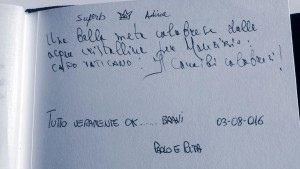 superb ☆ Active
Una Bella meta calabrese dalle
acque cristalline per
CAPO VATICANO: I Caraibi calabresi!
TUTTO VERAMENTE OK...... BRAVI 03-08-016
PAOLO E RITA